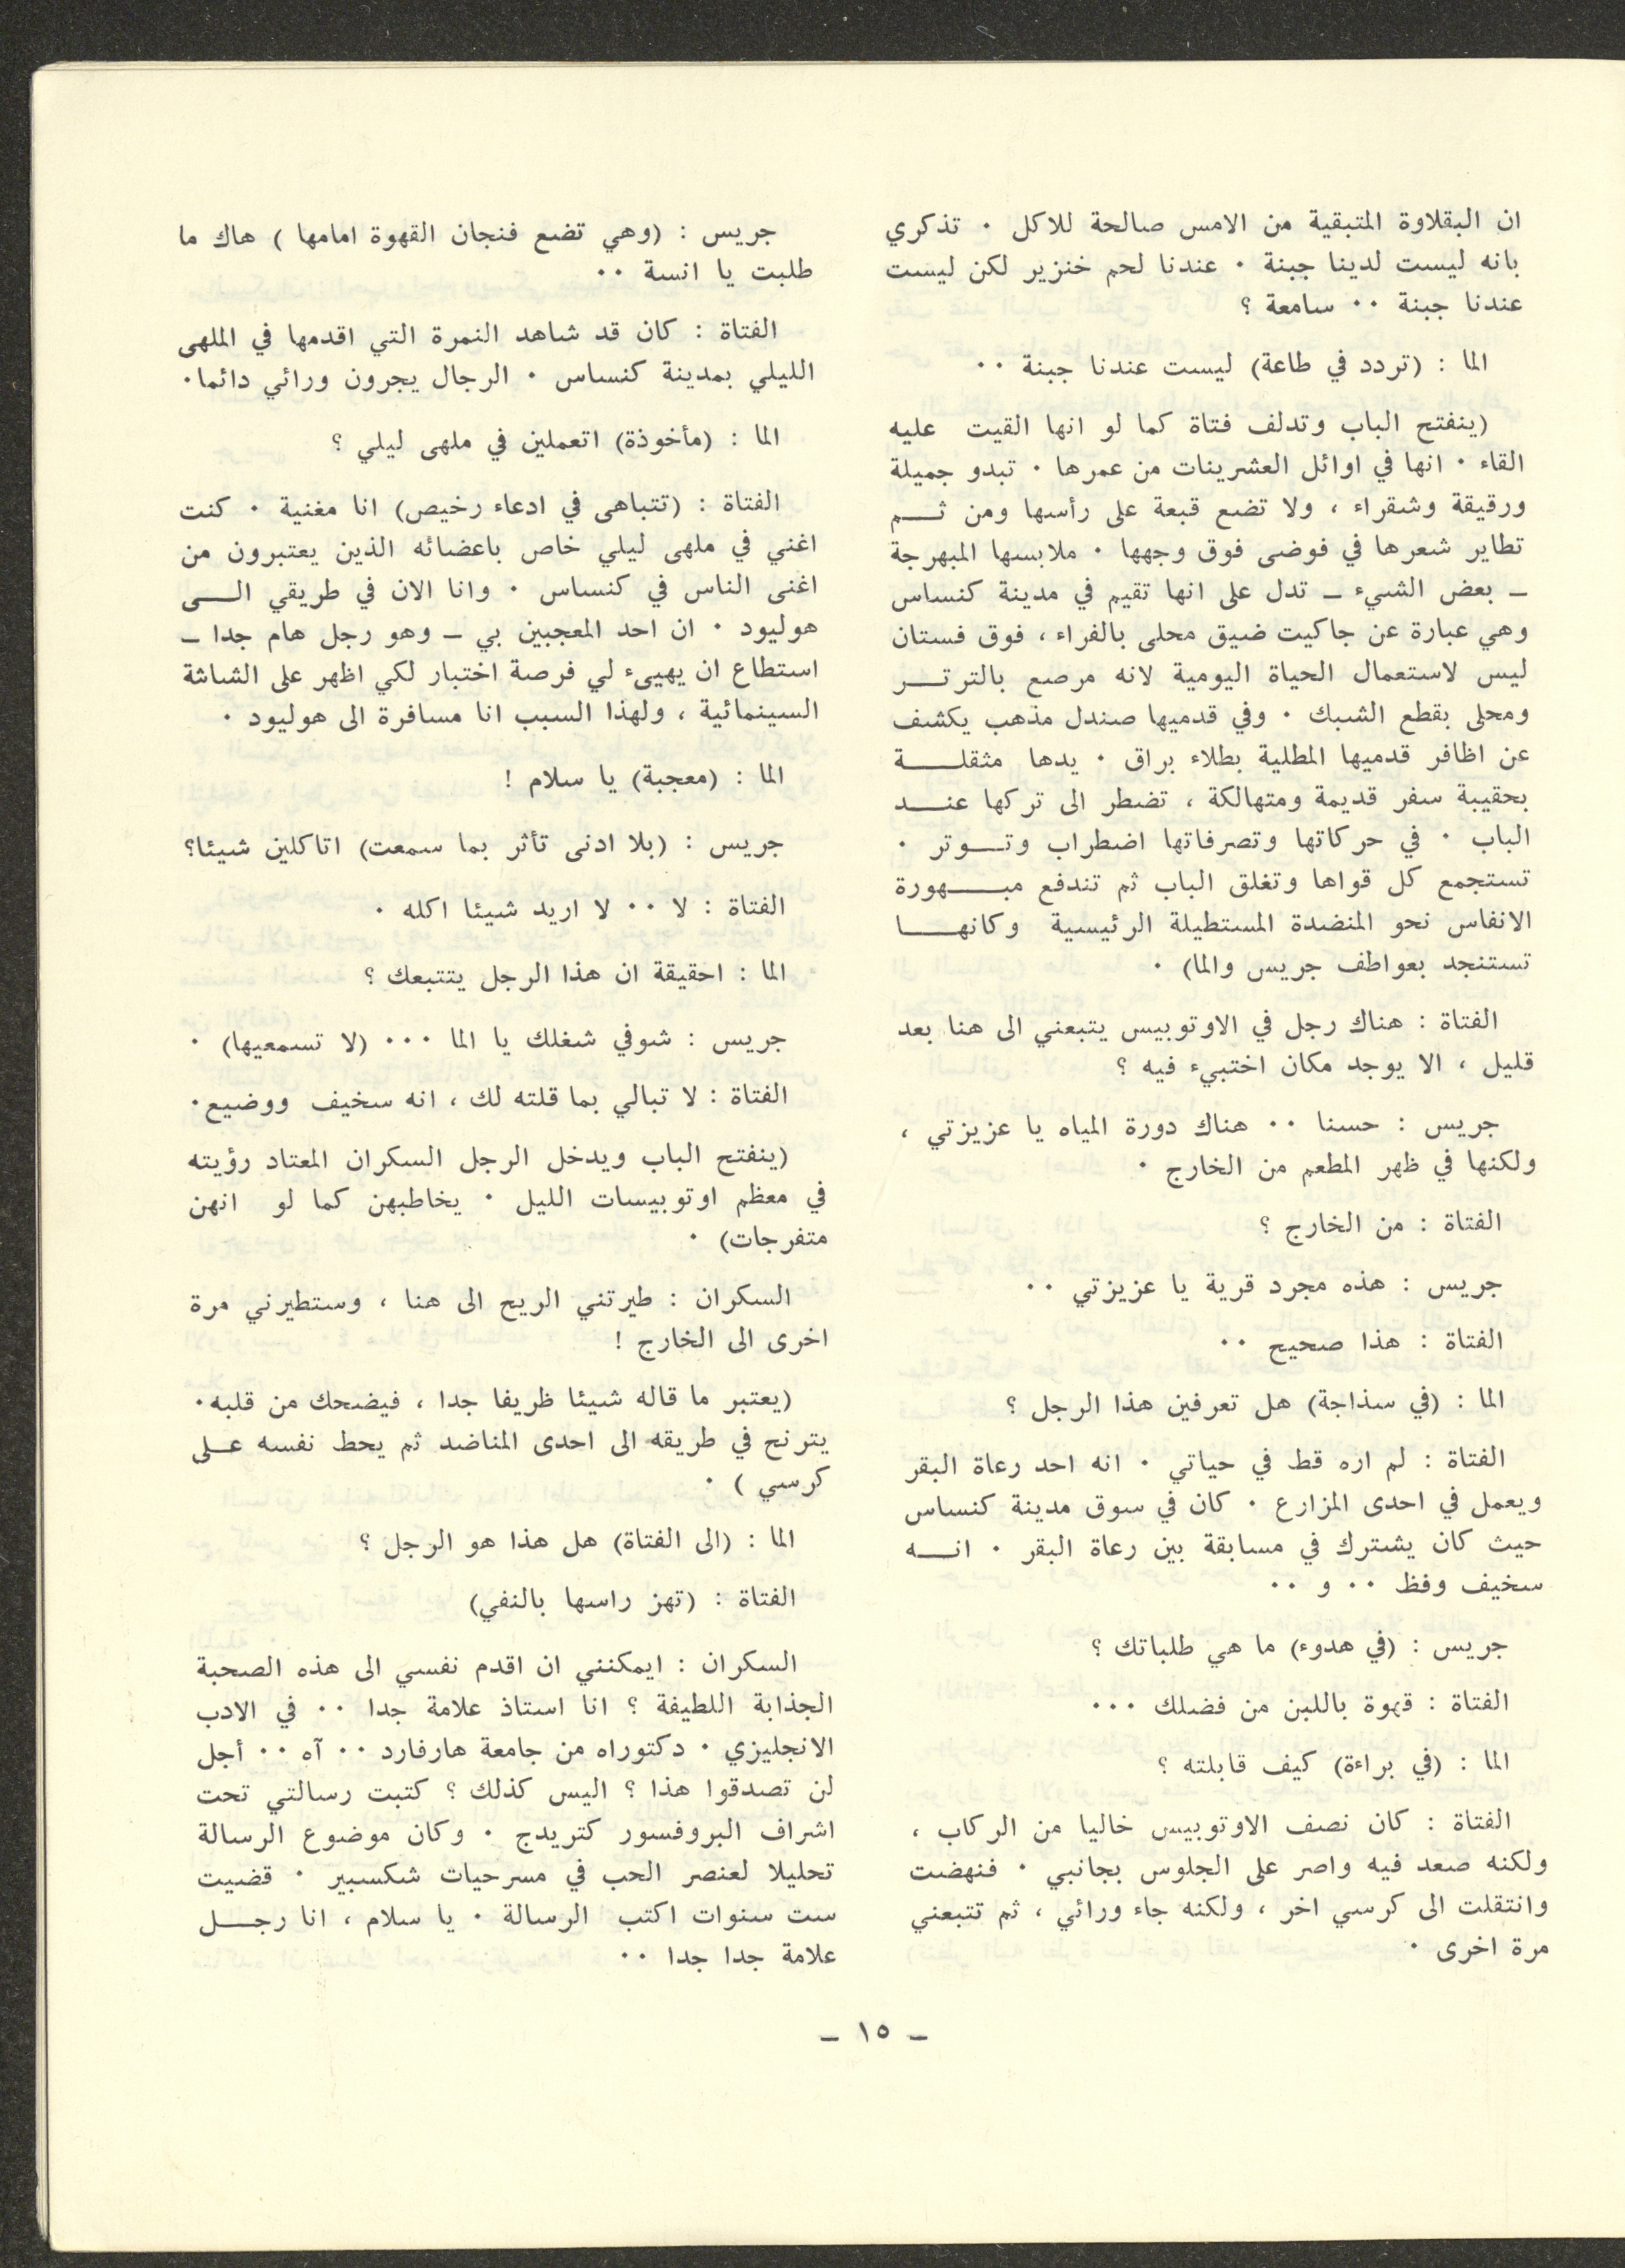 ان البقلاوة المتبقية من الامس صالحة للاكل ٠ تذكري
بانه ليست لدينا جبنة ٠ عندنا لحم خنزير لكن ليست
عندنا جبنة ٠٠ سامعة ؟
الما : (تردد في طاعة) ليست عندنا جبنة ٠٠
(ينفتح الباب وتدلف فتاة كما لو انها القيت عليه
القاء ٠ انها في اوائل العشرينات من عمرها ٠ تبدو جميلة
ورقيقة وشقراء ، ولا تضع قبعة على رأسها ومن ثـــم
تطاير شعرها في فوضى فوق وجهها ٠ ملابسها المبهرجة
ـ بعض الشيء ـ تدل على انها تقيم في مدينة كنساس
وهي عبارة عن جاكيت ضيق محلى بالفراء ، فوق فستان
ليس لاستعمال الحياة اليومية لانه مرصع بالترتـــر
ومحلى بقطع الشبك ٠ وفي قدميها صندل مذهب يكشف
عن اظافر قدميها المطلية بطلاء براق ٠ يدها مثقلـــة
بحقيبة سفر قديمة ومتهالكة ، تضطر الى تركها عنـــد
الباب ٠ في حركاتها وتصرفاتها اضطراب وتـــوتر ٠
تستجمع كل قواها وتغلق الباب ثم تندفع مبـــهورة
الانفاس نحو المنضدة المستطيلة الرئيسية وكانهـــا
تستنجد بعواطف جريس والما) ٠
الفتاة : هناك رجل في الاوتوبيس يتبعني الى هنا بعد
قليل ، الا يوجد مكان اختبيء فيه ؟
جريس : حسنا ٠٠ هناك دورة المياه يا عزيزتي ،
ولكنها في ظهر المطعم من الخارج ٠
الفتاة : من الخارج ؟
جريس : هذه مجرد قرية يا عزيزتي ٠٠
الفتاة : هذا صحيح ٠٠
الما : (في سذاجة) هل تعرفين هذا الرجل ؟
الفتاة : لم اره قط في حياتي ٠ انه احد رعاة البقر
ويعمل في احدى المزارع ٠ كان في سوق مدينة كنساس
حيث كان يشترك في مسابقة بين رعاة البقر ٠ انـــه
سخيف وفظ ٠٠ و ٠٠
جريس : (في هدوء) ما هي طلباتك ؟
الفتاة : قهوة باللبن من فضلك ٠٠٠
الما : (في براءة) كيف قابلته ؟
الفتاة : كان نصف الاوتوبيس خاليا من الركاب ،
ولكنه صعد فيه واصر على الجلوس بجانبي ٠ فنهضت
وانتقلت الى كرسي اخر ، ولكنه جاء ورائي ، ثم تتبعني
مرة اخرى ٠
جريس : (وهي تضع فنجان القهوة امامها ) هاك ما
طلبت يا انسة ٠٠
الفتاة : كان قد شاهد النمرة التي اقدمها في الملهى
الليلي بمدينة كنساس ٠ الرجال يجرون ورائي دائما٠
الما : (مأخوذة) اتعملين في ملهى ليلي ؟
الفتاة : (تتباهى في ادعاء رخيص) انا مغنية ٠ كنت
اغني في ملهى ليلي خاص باعضائه الذين يعتبرون من
اغنى الناس في كنساس ٠ وانا الان في طريقي الـــى
هوليود ٠ ان احد المعجبين بي ـ وهو رجل هام جدا ـ
استطاع ان يهييء لي فرصة اختبار لكي اظهر على الشاشة
السينمائية ، ولهذا السبب انا مسافرة الى هوليود ٠
الما : (معجبة) يا سلام !
جريس : (بلا ادنى تأثر بما سمعت) اتاكلين شيئا؟
الفتاة : لا ٠٠ لا اريد شيئا اكله ٠
الما : احقيقة ان هذا الرجل يتتبعك ؟
جريس : شوفي شغلك يا الما ٠٠٠ (لا تسمعيها) ٠
الفتاة : لا تبالي بما قلته لك ، انه سخيف ووضيع٠
(ينفتح الباب ويدخل الرجل السكران المعتاد رؤيته
في معظم اوتوبيسات الليل ٠ يخاطبهن كما لو انهن
متفرجات) ٠
السكران : طيرتني الريح الى هنا ، وستطيرني مرة
اخرى الى الخارج !
(يعتبر ما قاله شيئا ظريفا جدا ، فيضحك من قلبه٠
يترنح في طريقه الى احدى المناضد ثم يحط نفسه عـلى
كرسي ) ٠
الما : (الى الفتاة) هل هذا هو الرجل ؟
الفتاة : (تهز راسها بالنفي)
السكران : ايمكنني ان اقدم نفسي الى هذه الصحبة
الجذابة اللطيفة ؟ انا استاذ علامة جدا ٠٠ في الادب
الانجليزي ٠ دكتوراه من جامعة هارفارد ٠٠ آه ٠٠ أجل
لن تصدقوا هذا ؟ اليس كذلك ؟ كتبت رسالتي تحت
اشراف البروفسور كتريدج ٠ وكان موضوع الرسالة
تحليلا لعنصر الحب في مسرحيات شكسبير ٠ قضيت
ست سنوات اكتب الرسالة ٠ يا سلام ، انا رجـــل
علامة جدا جدا ٠٠
ـ ١٥ ـ